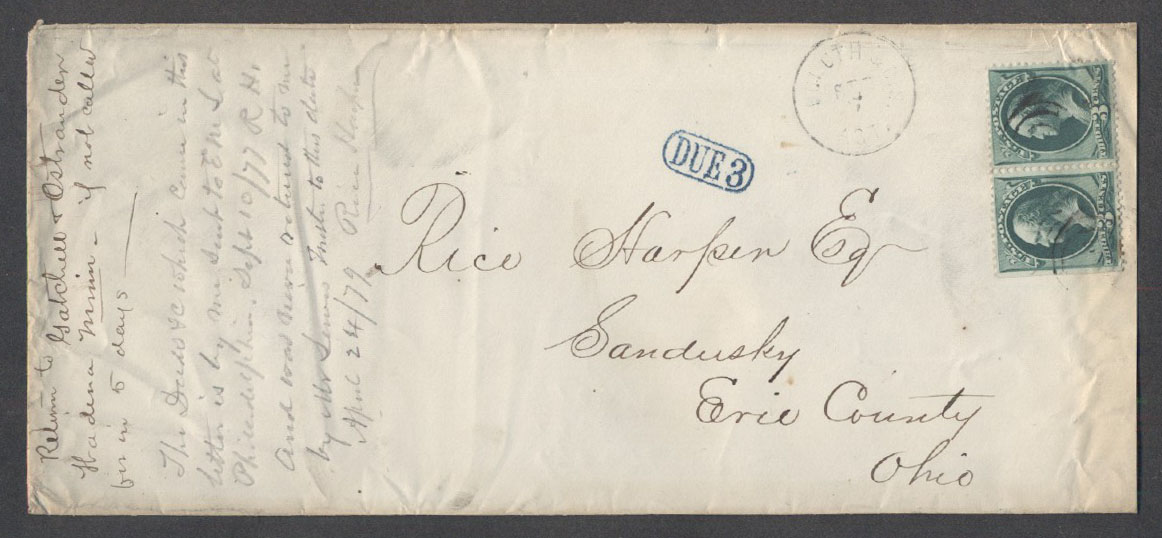 Return to Gatchell & Ostrander
Minn - if not called
for in 5 days
The Deed &c which came in this
letter is by me sent to at
Philadelphia. Sept 10/77 R. H.
And was never returned to me
by Mr Lewis to this date
April 24/79 Rice Harper
DULUTH
DUE 3
Rice Harper Esq
Sandusky
Erie County
Ohio